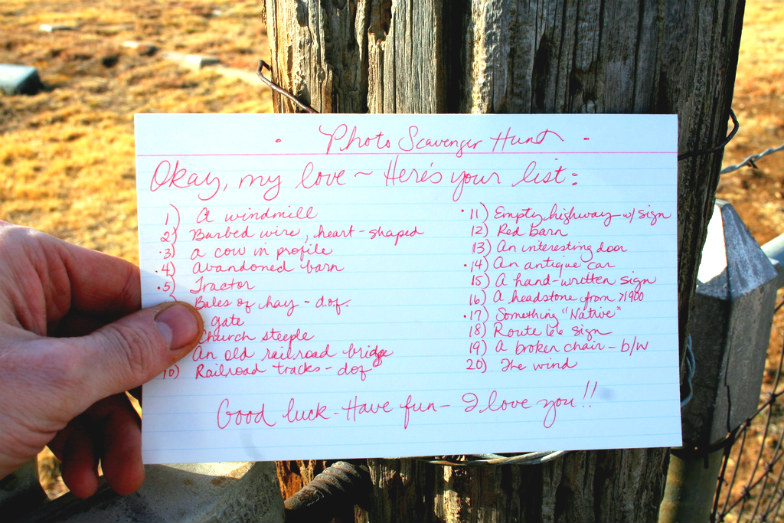 - Photo Scavenger Hunt -
Okay, my love ~ Here's your list:
1) A windmill
2) Barbed wire, heart-shaped
• 3) a cow in profile
• 4) Abandoned barn
• 5) Tractor
Bales of hay - dof.
gate
Church steeple
An old railroad bridge
10) Railroad tracks - dof
• 11) Empty highway w/ sign
12) Red barn
13) An interesting door
• 14) An antique car
15) A hand-written sign
16) A headstone from >1900
• 17) Something "Native"
18) Route 66 sign
19) A broken chair - b/w
20) The wind
Good luck - Have fun - I love you!!